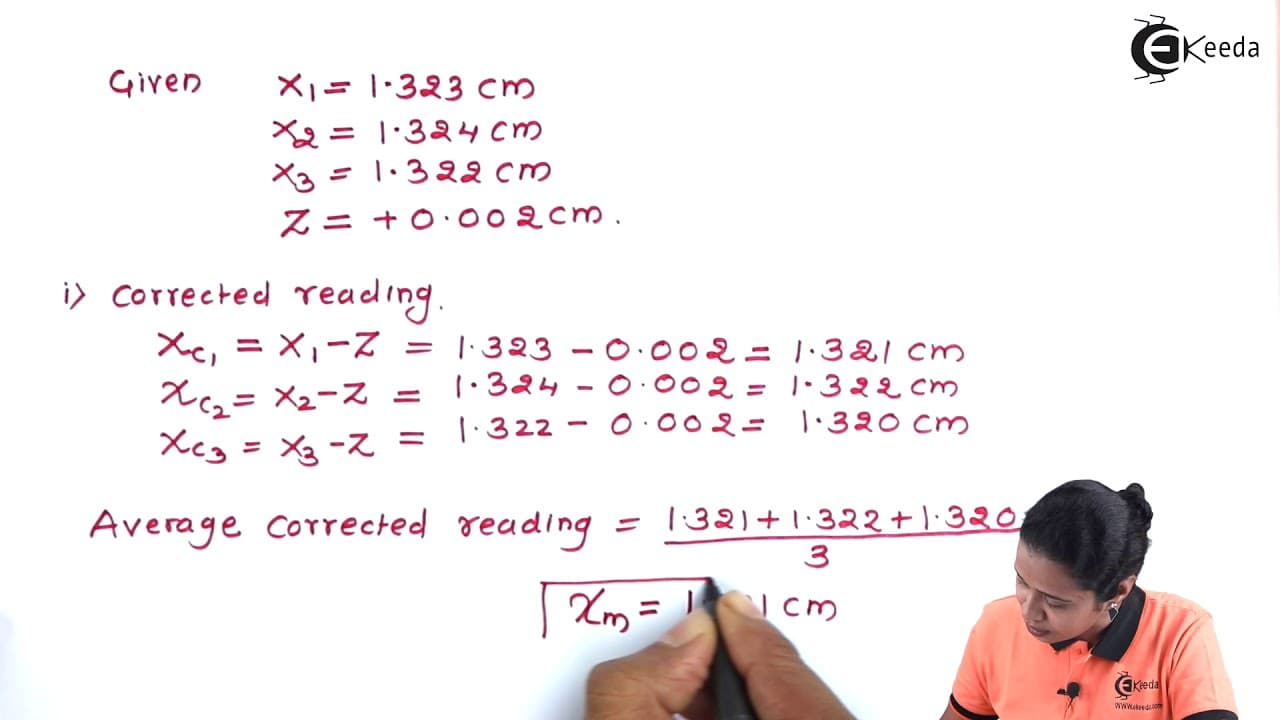 EKeeda
Given X1 = 1.323 cm
X2 = 1.324 cm
X3 = 1.322 cm
Z = +0.002 cm.
i) Corrected reading.
Xc1 = X1-Z = 1.323 - 0.002 = 1.321 cm
Xc2 = X2-Z = 1.324 - 0.002 = 1.322 cm
Xc3 = X3-Z = 1.322 - 0.002 = 1.320 cm
Average corrected reading = 1.321 + 1.322 + 1.320
3
Xm = 1 cm
EKeeda
www.ekeeda.com